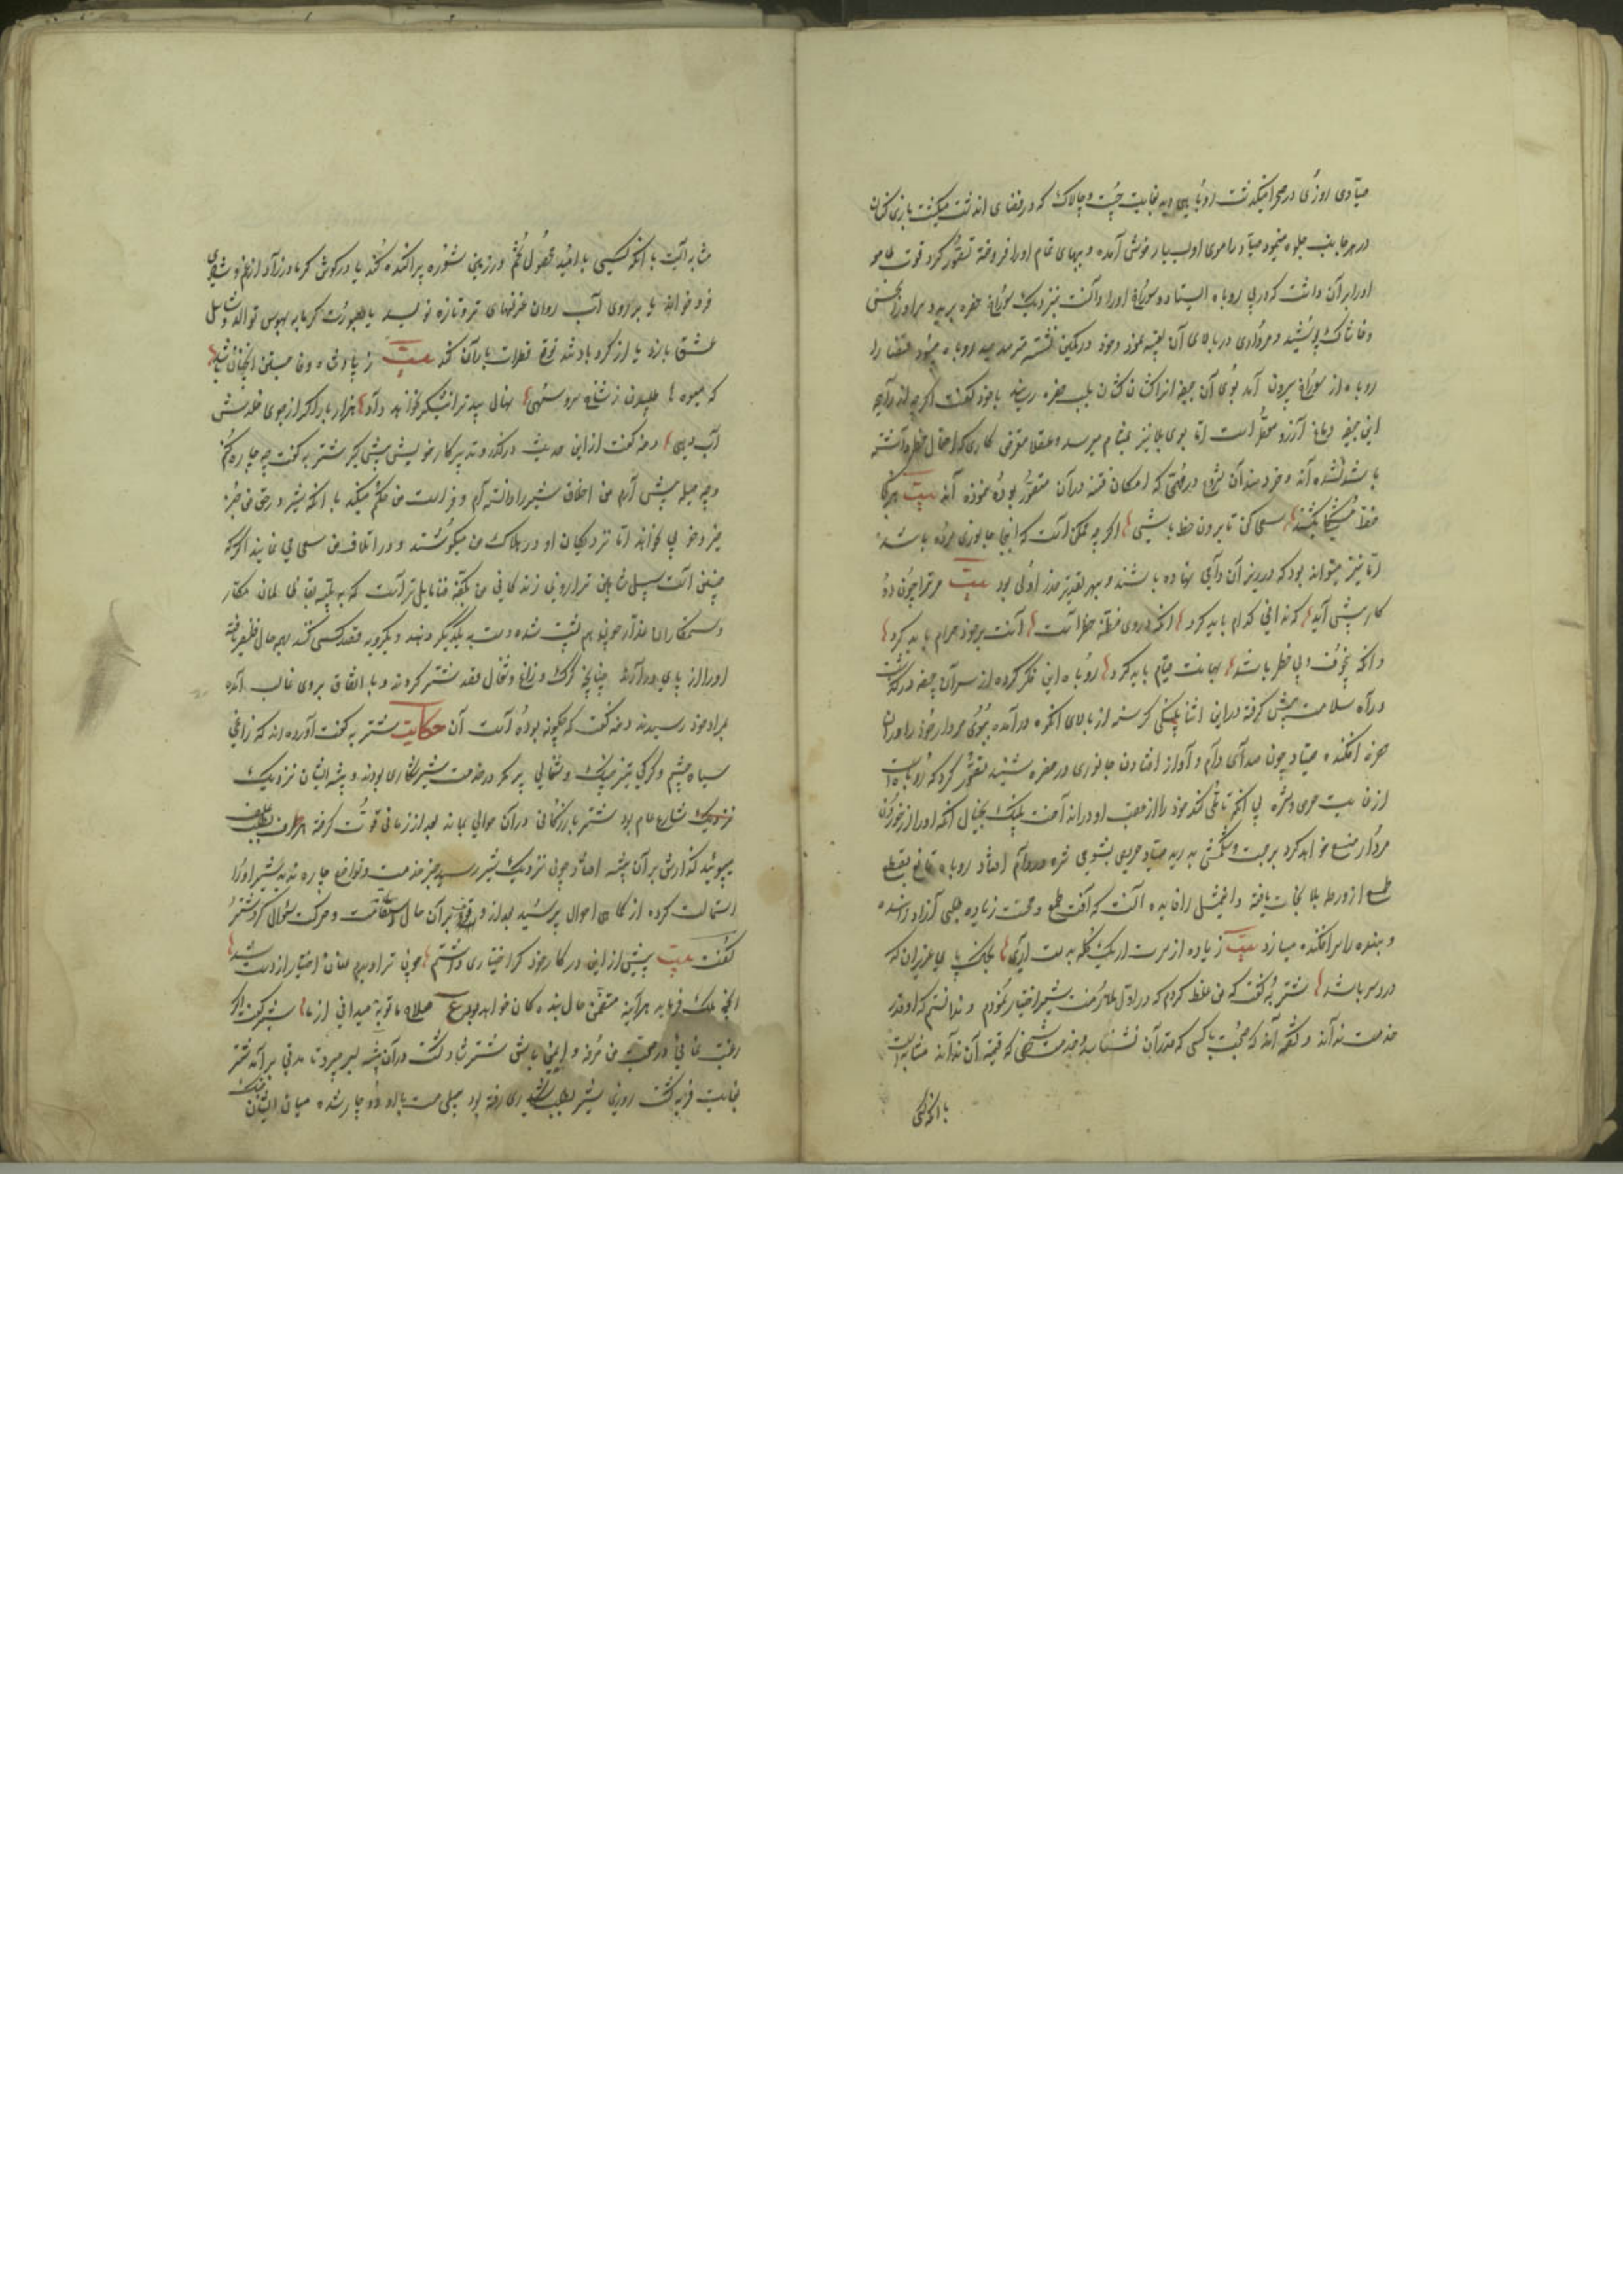 صیادی روزی در صحرا میگذشت روباهی دید بغایت چست و چالاک که در فضای آن دشت میگشت بازی کنان
در هر جانب جلوه مینمود صیاد را موی او بسیار خوش آمده و ببهای تمام او را فروخته تصور کرد قوت طامعه
او را بر آن داشت که در پی روباه ایستاد و سوراخ او را دانست نزدیک سوراخ حفره ببرید و سر او را بخس
و خاشاک پوشید و مرداری در بالای آن تعبیه نمود و خود در کمین نشسته مترصد صید روباه میبود قضا را
روباه از سوراخ بیرون آمد بوی آن جیفه او را کشان کشان بلب حفره رسانید با خود گفت اگر چه از رایحه
این جیفه دماغ آرزو معطر است اما بوی بلا نیز بمشام میرسد و عقلا متعرض کاری که احتمال خطر داشته
باشد نشده‌اند و خردمندان شروع در مهمی که امکان فتنه در آن متصور بوده ننموده‌اند بیت هر کجا
خط مشکل بکشند سعی کن تا برون خط باشی اگر چه ممکن است که اینجا جانوری مرده باشد
اما نیز میتواند بود که در زیر آن دامی نهاده باشند و بهر تقدیر حذر اولی بود بیت مر ترا چون دو
کار پیش آید که ندانی کدام باید کرد آنکه در وی مظنه خطر است آنت بر خود حرام باید کرد
و آنکه بی خوف و بی خطر باشد بهمانت قیام باید کرد روباه این فکر کرده از سر آن جیفه در گذشت
و راه سلامت پیش گرفته در این اثنا پلنگی گرسنه از بالای کوه در آمده ببوی مردار خود را در آن
حفره افکند صیاد چون صدای دام و آواز افتادن جانوری در حفره شنید تصور کرد که روباه است
از غایت حرص و شره بی آنکه تأملی کند خود را از عقب او در انداخت پلنگ بخیال آنکه او را از خوردن
مردار منع خواهد کرد برجست و شکمش بدرید صیاد حریص بشومی شره در دام افتاد روباه قانع بقطع
طمع از ورطه بلا نجات یافته و این مثل را فایده آنست که آفت طمع و محنت زیاده طلبی آزاد را بنده
و بنده را سرافکنده میسازد بیت زیاده از سرت ار یک کله بدست آری بخاک پای عزیزان که
درد سر باشد شتربه گفت که من غلط کردم که در اول ملازمت شیر اختیار نمودم و ندانستم که او قدر
خدمت نداند و گفته‌اند که صحبت با کسی که قدر آن نشناسد و خدمت شخصی که قیمت آن نداند بمثابه آنست
با آنکه کسی
مثابه آنست با آنکه کسی بامید محصول تخم در زمین شوره پراکنده کند یا در گوش کر مادرزاد از غم و شادی
فرو خواند یا بر روی آب روان غزلهای تر و تازه نویسد یا بصورت گرمابه بهوس توالد و تناسل
عشق بازد یا از گردباد تند توقع قطرات باران کند بیت ز پادشاه وفا جستن آنچنان باشد
که میوه‌ها طلبیدن ز شاخ سرو سهی نهال بید تر از نیشکر نخواهد داد هزار بار اگر از جوی خلدش
آب دهی دمنه گفت از این حدیث در گذر و تدبیر کار خویش پیش گیر شتربه گفت چه چاره کنم
و چه حیله پیش آرم من اخلاق شیر را دانسته‌ام و فراست من حکم میکند با آنکه شیر در حق من جز
خیر و خوبی نخواهد اما نزدیکان او در هلاک من میکوشند و در اتلاف من سعی می نمایند اگر
چنین است پس شاهین ترازوی زندگانی من بکفه فنا مایل تر است که به پله بقا ظالمان مکار
و ستمکاران غدار چون هم پشت شده دست بیکدیگر دهند و یکرویه قصد کسی کنند بهر حال ظفر یافته
او را از پای در آرند چنانچه گرگ و زاغ و شغال قصد شتر کردند و باتفاق بر وی غالب آمده
بمراد خود رسیدند دمنه گفت که چگونه بوده است آن حکایت شتربه گفت آورده‌اند که زاغی
سیاه چشم و گرگی تیز چنگ و شغالی پر مکر در خدمت شیر شکاری بودند و بیشه ایشان نزدیک
نزدیک شارع عام بود شتر بازرگانی در آن حوالی بماند بعد از زمانی قوت گرفته هر طرف بطلب علف
میپوئید گذارش بر آن بیشه افتاد چون نزدیک شیر رسید جز خدمت و تواضع چاره ندید شیر او را
استمالت کرده از کماهی احوال پرسید بعد از وقوف بر آن حال از اقامت و حرکت سؤال کرد شتر
گفت بیت پیش از این در کار خود گر اختیاری داشتم چون ترا دیدم عنان اختیار از دست شد
آنچه ملک فرماید هر آینه متضمن حال بنده گان خواهد بود ع صلاح ما تو به میدانی از ما شیر گفت اگر
رغبت نمائی در صحبت من مرفه و ایمن باش شتر شاد گشت در آن بیشه بسر میبرد تا مدتی بر آمد شتر
بغایت فربه گشت روزی شیر بطلب شکاری رفته بود پیلی مست با او دوچار شده میان ایشان جنگ